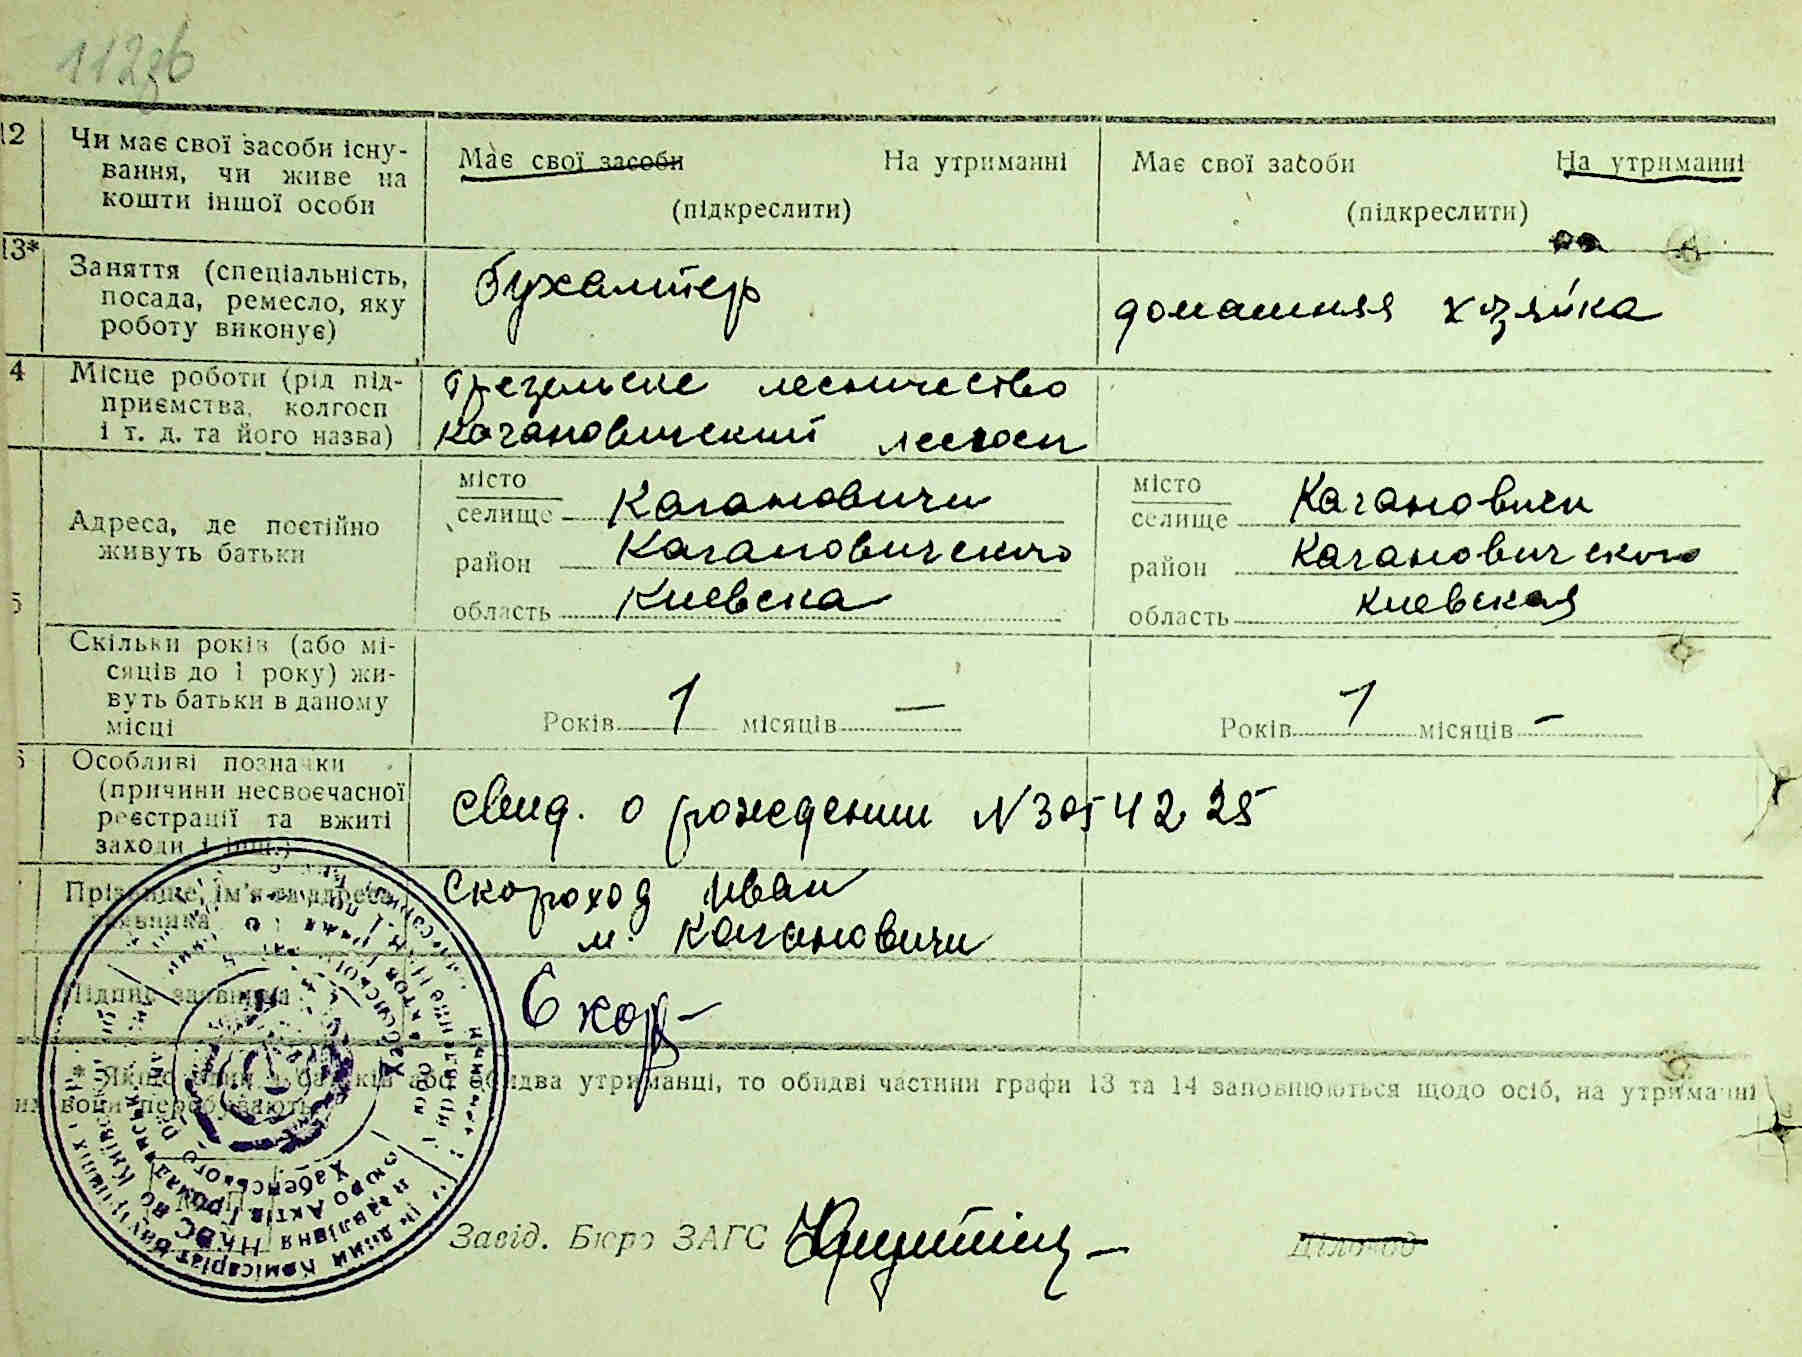 112зв
12 Чи має свої засоби існу-
вання, чи живе на
кошти іншої особи
Має свої засоби На утриманні
(підкреслити)
Має свої засоби На утриманні
(підкреслити)
13* Заняття (спеціальність,
посада, ремесло, яку
роботу виконує)
бухалтер
домашняя хзяйка
4 Місце роботи (рід під-
приємства, колгосп
і т. д. та його назва)
лесничество
Кагановический лесхоз
5 Адреса, де постійно
живуть батьки
місто
селище Кагановичи
район Кагановичского
область Киевска
місто
селище Кагановичи
район Кагановичского
область Киевская
Скільки років (або мі-
сяців до 1 року) жи-
вуть батьки в даному
місці
Років 1 місяців —
Років 1 місяців —
6 Особливі позначки
(причини несвоєчасної
реєстрації та вжиті
заходи і інш.)
свид. о рождении N 3054225
Прізвище, ім'я та адреса
заявника
Скороход Иван
м. Кагановичи
Підпис заявника
Скор-
* Якщо один з батьків або обидва утриманці, то обидві частини графи 13 та 14 заповнюються щодо осіб, на утриманні
яких вони перебувають.
Завід. Бюро ЗАГС
Діловод